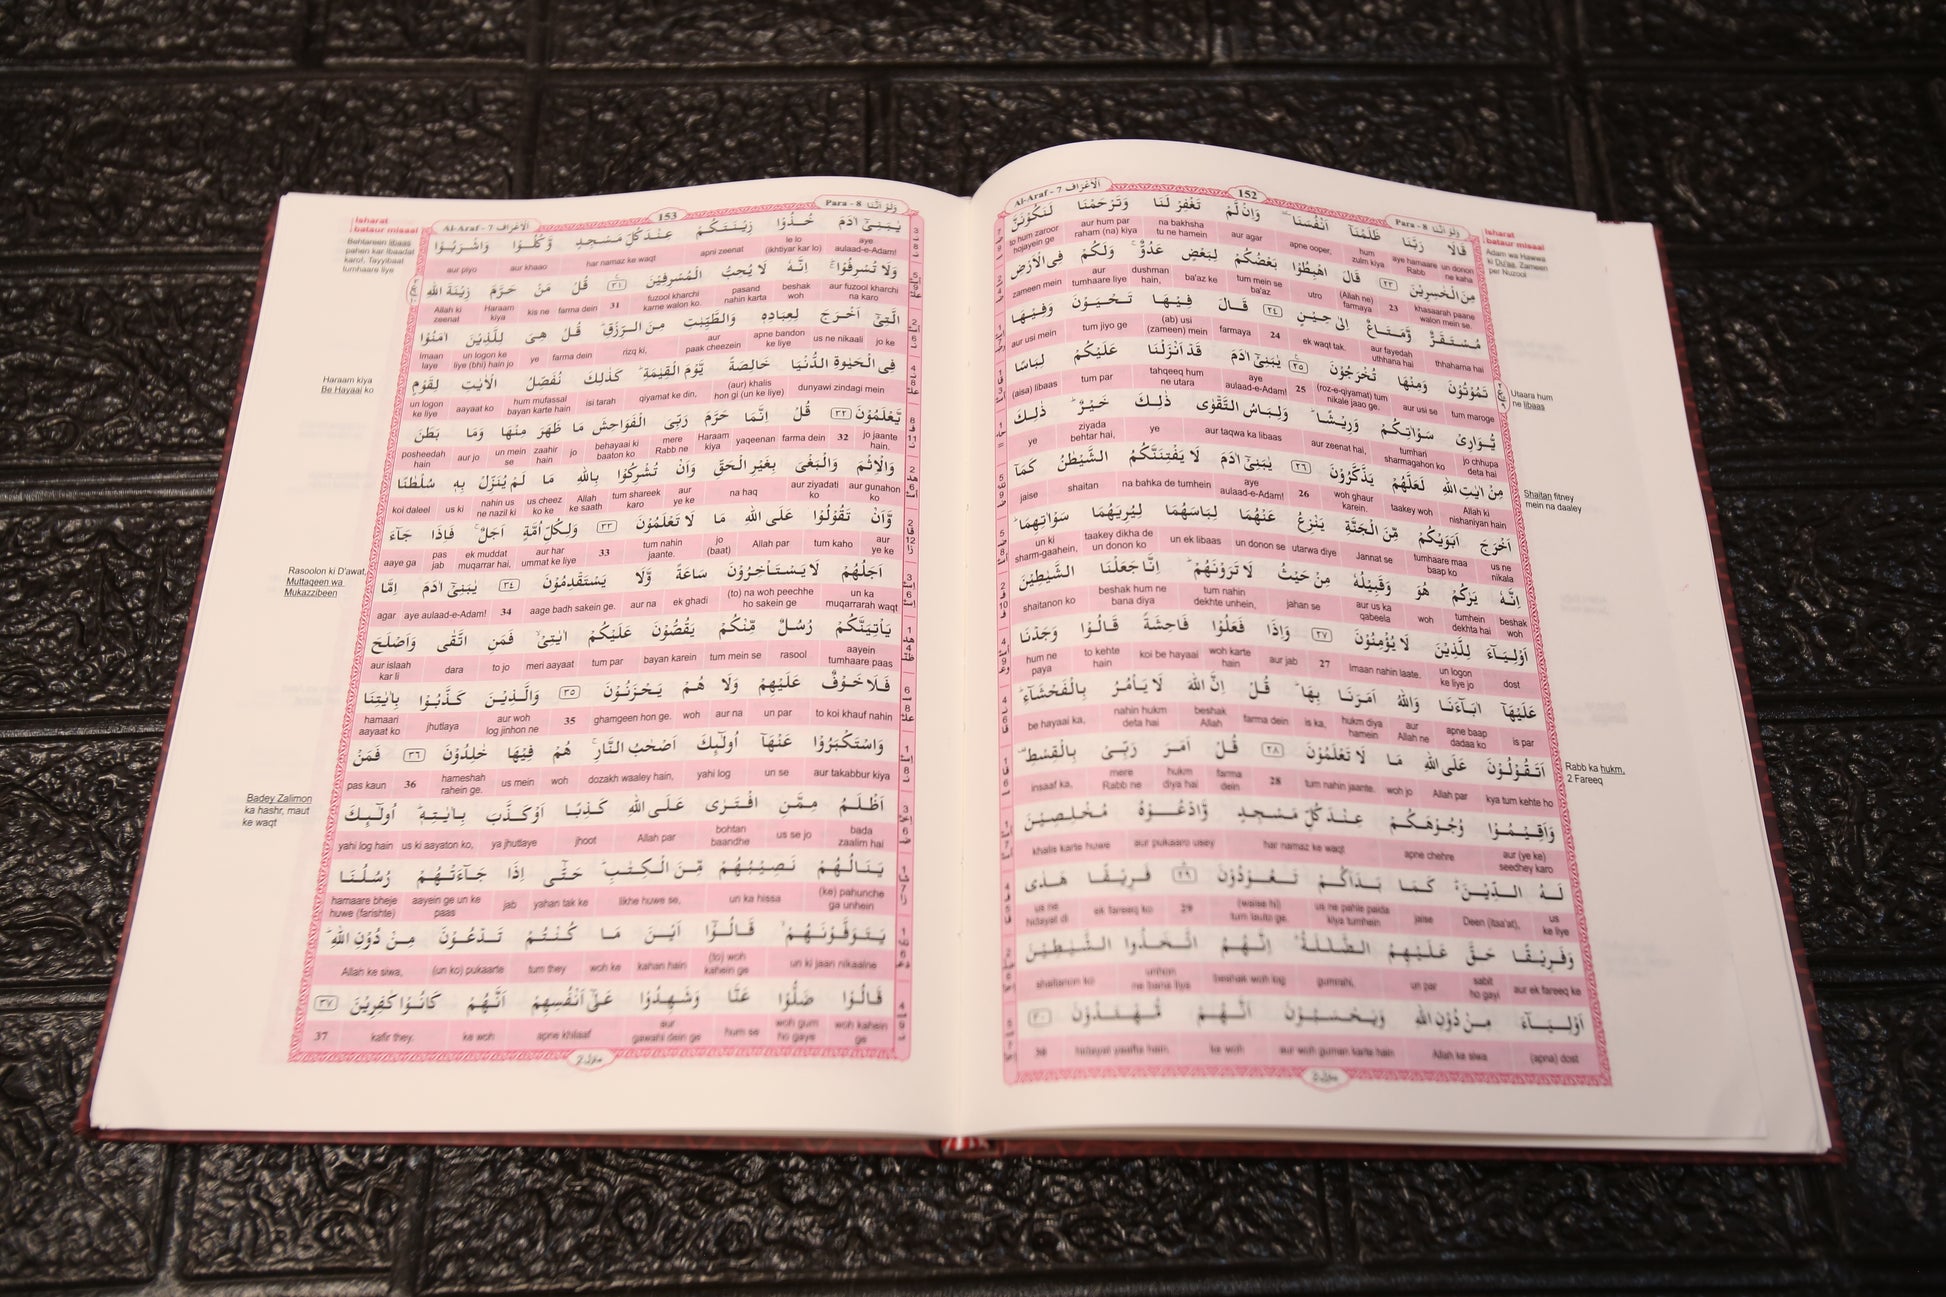 Al-Araf - 7 اَلْاَعْرَاف
152
Para - 8 وَلَوْ اَنَّنَا
قَالَا رَبَّنَا ظَلَمْنَاۤ اَنْفُسَنَا ٚ وَاِنْ لَّمْ تَغْفِرْ لَنَا وَتَرْحَمْنَا لَنَكُوْنَنَّ
un donon ne kaha aye hamaare Rabb hum zulm kiya apne ooper, aur agar na bakhsha tu ne hamein aur hum par raham (na) kiya to hum zaroor hojayein ge
مِنَ الْخٰسِرِيْنَ ﴿٢٣﴾ قَالَ اهْبِطُوْا بَعْضُكُمْ لِبَعْضٍ عَدُوٌّ ۚ وَلَكُمْ فِى الْاَرْضِ
khasaarah paane walon mein se. 23 (Allah ne) farmaya utro tum mein se ba'az ba'az ke dushman hain, aur tumhaare liye zameen mein
مُسْتَقَرٌّ وَّمَتَاعٌ اِلٰى حِيْنٍ ﴿٢٤﴾ قَالَ فِيْهَا تَحْيَوْنَ وَفِيْهَا
thhaharna hai aur fayedah uthhana hai ek waqt tak. 24 farmaya (ab) usi (zameen) mein tum jiyo ge aur usi mein
تَمُوْتُوْنَ وَمِنْهَا تُخْرَجُوْنَ ﴿٢٥﴾ يٰبَنِيْۤ اٰدَمَ قَدْ اَنْزَلْنَا عَلَيْكُمْ لِبَاسًا
tum maroge aur usi se (roz-e-qiyamat) tum nikale jaao ge. 25 aye aulaad-e-Adam! tahqeeq hum ne utara tum par (aisa) libaas
يُّوَارِيْ سَوْاٰتِكُمْ وَرِيْشًا ؕ وَلِبَاسُ التَّقْوٰى ذٰلِكَ خَيْرٌ ؕ ذٰلِكَ
jo chhupa deta hai tumhari sharmagahon ko aur zeenat hai, aur taqwa ka libaas ye ziyada behtar hai, ye
مِنْ اٰيٰتِ اللّٰهِ لَعَلَّهُمْ يَذَّكَّرُوْنَ ﴿٢٦﴾ يٰبَنِيْۤ اٰدَمَ لَا يَفْتِنَنَّكُمُ الشَّيْطٰنُ كَمَاۤ
Allah ki nishaniyan hain taakey woh woh ghaur karein. 26 aye aulaad-e-Adam! na bahka de tumhein shaitan jaise
اَخْرَجَ اَبَوَيْكُمْ مِّنَ الْجَنَّةِ يَنْزِعُ عَنْهُمَا لِبَاسَهُمَا لِيُرِيَهُمَا سَوْاٰتِهِمَا ؕ
us ne nikala tumhaare maa baap ko Jannat se utarwa diye un donon se un ek libaas taakey dikha de un donon ko un ki sharm-gaahein,
اِنَّهٗ يَرٰىكُمْ هُوَ وَقَبِيْلُهٗ مِنْ حَيْثُ لَا تَرَوْنَهُمْ ؕ اِنَّا جَعَلْنَا الشَّيٰطِيْنَ
beshak woh tumhein dekhta hai woh aur us ka qabeela jahan se tum nahin dekhte unhein, beshak hum ne bana diya shaitanon ko
اَوْلِيَآءَ لِلَّذِيْنَ لَا يُؤْمِنُوْنَ ﴿٢٧﴾ وَاِذَا فَعَلُوْا فَاحِشَةً قَالُوْا وَجَدْنَا
dost un logon ke liye jo Imaan nahin laate. 27 aur jab woh karte hain koi be hayaai to kehte hain hum ne paya
عَلَيْهَاۤ اٰبَآءَنَا وَاللّٰهُ اَمَرَنَا بِهَا ؕ قُلْ اِنَّ اللّٰهَ لَا يَاْمُرُ بِالْفَحْشَآءِ ؕ
is par apne baap dadaa ko aur Allah ne hukm diya hamein is ka, farma dein beshak Allah nahin hukm deta hai be hayaai ka,
اَتَقُوْلُوْنَ عَلَى اللّٰهِ مَا لَا تَعْلَمُوْنَ ﴿٢٨﴾ قُلْ اَمَرَ رَبِّيْ بِالْقِسْطِ ٚ
kya tum kehte ho Allah par woh jo tum nahin jaante. 28 farma dein hukm diya hai mere Rabb ne insaaf ka,
وَاَقِيْمُوْا وُجُوْهَكُمْ عِنْدَ كُلِّ مَسْجِدٍ وَّادْعُوْهُ مُخْلِصِيْنَ
aur (ye ke) seedhey karo apne chehre har namaz ke waqt aur pukaaro usey khalis karte huwe
لَهُ الدِّيْنَ ؕ كَمَا بَدَاَكُمْ تَعُوْدُوْنَ ﴿٢٩﴾ فَرِيْقًا هَدٰى
us ke liye Deen (itaa'at), jaise us ne pahle paida kiya tumhein (waise hi) tum lauto ge. 29 ek fareeq ko us ne hidayat di
وَفَرِيْقًا حَقَّ عَلَيْهِمُ الضَّلٰلَةُ ؕ اِنَّهُمُ اتَّخَذُوا الشَّيٰطِيْنَ
aur ek fareeq ke sabit ho gayi un par gumrahi, beshak woh log unhon ne bana liya shaitanon ko
اَوْلِيَآءَ مِنْ دُوْنِ اللّٰهِ وَيَحْسَبُوْنَ اَنَّهُمْ مُّهْتَدُوْنَ ﴿٣٠﴾
(apna) dost Allah ke siwa aur woh guman karte hain ke woh hidayat yaafta hain. 30
Isharat
bataur misaal
Adam wa Hawwa
ki Du'aa, Zameen
per Nuzool
Utaara hum
ne libaas
Shaitan fitney
mein na daaley
Rabb ka hukm,
2 Fareeq
Al-Araf - 7 اَلْاَعْرَاف
153
Para - 8 وَلَوْ اَنَّنَا
يٰبَنِيْۤ اٰدَمَ خُذُوْا زِيْنَتَكُمْ عِنْدَ كُلِّ مَسْجِدٍ وَّكُلُوْا وَاشْرَبُوْا
aye aulaad-e-Adam! le lo (ikhtiyar kar lo) apni zeenat har namaz ke waqt aur khaao aur piyo
وَلَا تُسْرِفُوْا ۚ اِنَّهٗ لَا يُحِبُّ الْمُسْرِفِيْنَ ﴿٣١﴾ قُلْ مَنْ حَرَّمَ زِيْنَةَ اللّٰهِ
aur fuzool kharchi na karo beshak woh pasand nahin karta fuzool kharchi karne walon ko. 31 farma dein kis ne Haraam kiya Allah ki zeenat
الَّتِيْۤ اَخْرَجَ لِعِبَادِهٖ وَالطَّيِّبٰتِ مِنَ الرِّزْقِ ؕ قُلْ هِىَ لِلَّذِيْنَ اٰمَنُوْا
jo ke us ne nikaali apne bandon ke liye aur paak cheezein rizq ki, farma dein ye un logon ke liye (bhi) hain jo Imaan laye
فِى الْحَيٰوةِ الدُّنْيَا خَالِصَةً يَّوْمَ الْقِيٰمَةِ ؕ كَذٰلِكَ نُفَصِّلُ الْاٰيٰتِ لِقَوْمٍ
dunyawi zindagi mein (aur) khalis hon gi (un ke liye) qiyamat ke din, isi tarah hum mufassal bayan karte hain aayaat ko un logon ke liye
يَّعْلَمُوْنَ ﴿٣٢﴾ قُلْ اِنَّمَا حَرَّمَ رَبِّيَ الْفَوَاحِشَ مَا ظَهَرَ مِنْهَا وَمَا بَطَنَ
jo jaante hain. 32 farma dein yaqeenan Haraam kiya mere Rabb ne behayaai ki baaton ko jo zaahir hain un mein se aur jo posheedah hain
وَالْاِثْمَ وَالْبَغْيَ بِغَيْرِ الْحَقِّ وَاَنْ تُشْرِكُوْا بِاللّٰهِ مَا لَمْ يُنَزِّلْ بِهٖ سُلْطٰنًا
aur gunahon ko aur ziyadati ko na haq aur ye ke tum shareek karo Allah ke saath us cheez ko ke nahin us ne nazil ki us ki koi daleel
وَّاَنْ تَقُوْلُوْا عَلَى اللّٰهِ مَا لَا تَعْلَمُوْنَ ﴿٣٣﴾ وَلِكُلِّ اُمَّةٍ اَجَلٌ ۚ فَاِذَا جَآءَ
aur ye ke tum kaho Allah par jo (baat) tum nahin jaante. 33 aur har ummat ke liye ek muddat muqarrar hai, pas jab aaye ga
اَجَلُهُمْ لَا يَسْتَاْخِرُوْنَ سَاعَةً وَّلَا يَسْتَقْدِمُوْنَ ﴿٣٤﴾ يٰبَنِيْۤ اٰدَمَ اِمَّا
un ka muqarrarah waqt (to) na woh peechhe ho sakein ge ek ghadi aur na aage badh sakein ge. 34 aye aulaad-e-Adam! agar
يَاْتِيَنَّكُمْ رُسُلٌ مِّنْكُمْ يَقُصُّوْنَ عَلَيْكُمْ اٰيٰتِيْ ۙ فَمَنِ اتَّقٰى وَاَصْلَحَ
aayein tumhaare paas rasool tum mein se bayan karein tum par meri aayaat to jo dara aur islaah kar li
فَلَا خَوْفٌ عَلَيْهِمْ وَلَا هُمْ يَحْزَنُوْنَ ﴿٣٥﴾ وَالَّذِيْنَ كَذَّبُوْا بِاٰيٰتِنَا
to koi khauf nahin un par aur na woh ghamgeen hon ge. 35 aur woh log jinhon ne jhutlaya hamaari aayaat ko
وَاسْتَكْبَرُوْا عَنْهَاۤ اُولٰٓئِكَ اَصْحٰبُ النَّارِ ۚ هُمْ فِيْهَا خٰلِدُوْنَ ﴿٣٦﴾ فَمَنْ
aur takabbur kiya un se yahi log dozakh waaley hain, woh us mein hameshah rahein ge. 36 pas kaun
اَظْلَمُ مِمَّنِ افْتَرٰى عَلَى اللّٰهِ كَذِبًا اَوْ كَذَّبَ بِاٰيٰتِهٖ ؕ اُولٰٓئِكَ
bada zaalim hai us se jo bohtan baandhe Allah par jhoot ya jhutlaye us ki aayaton ko, yahi log hain
يَنَالُهُمْ نَصِيْبُهُمْ مِّنَ الْكِتٰبِ ؕ حَتّٰۤى اِذَا جَآءَتْهُمْ رُسُلُنَا
(ke) pahunche ga unhein un ka hissa likhe huwe se, yahan tak ke jab aayein ge un ke paas hamaare bheje huwe (farishte)
يَتَوَفَّوْنَهُمْ ۙ قَالُوْۤا اَيْنَ مَا كُنْتُمْ تَدْعُوْنَ مِنْ دُوْنِ اللّٰهِ ؕ
un ki jaan nikaalne (to) woh kahein ge kahan hain woh ke tum they (un ko) pukaarte Allah ke siwa,
قَالُوْا ضَلُّوْا عَنَّا وَشَهِدُوْا عَلٰۤى اَنْفُسِهِمْ اَنَّهُمْ كَانُوْا كٰفِرِيْنَ ﴿٣٧﴾
woh kahein ge woh gum ho gaye hum se aur gawahi dein ge apne khilaaf ke woh kafir they. 37
Isharat
bataur misaal
Behtareen libaas
pahen kar Ibaadat
karo!, Tayyibaat
tumhaare liye
Haraam kiya
Be Hayaai ko
Rasoolon ki D'awat,
Muttaqeen wa
Mukazzibeen
Badey Zalimon
ka hashr, maut
ke waqt